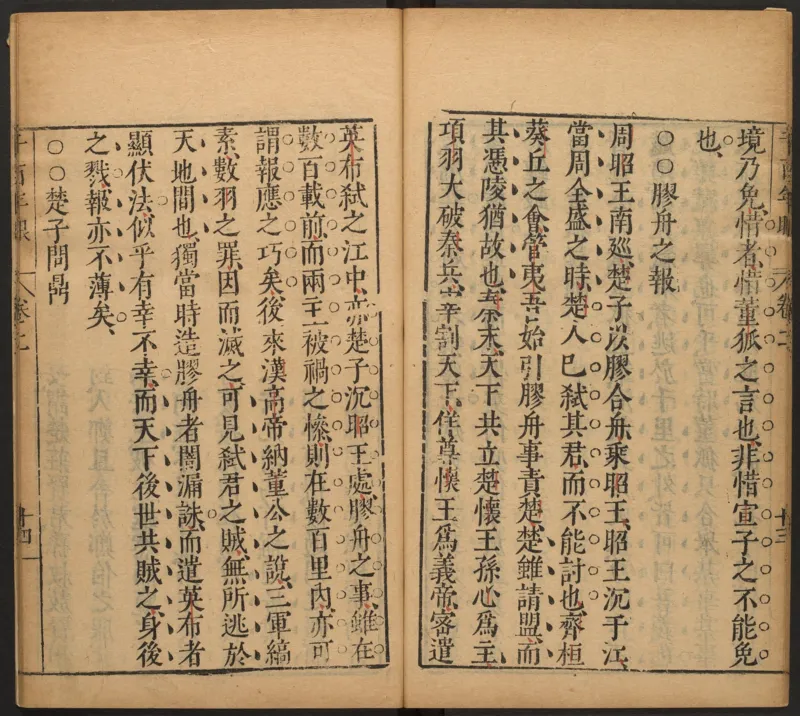 境乃免惜者惜董狐之言也非惜宣子之不能免
也
○○膠舟之報
周昭王南廵楚子以膠合舟乘昭王昭王沉于江
當周全盛之時楚人巳弑其君而不能討也齊桓
葵丘之會管夷吾始引膠舟事責楚楚雖請盟而
其憑陵猶故也秦末天下共立楚懷王孫心爲王
項羽大破秦兵宰割天下佯尊懷王爲義帝密遣
英布弑之江中亦楚子沉昭王處膠舟之事雖在
數百載前而兩主被禍之慘則在數百里內亦可
謂報應之巧矣後來漢高帝納董公之說三軍縞
素數羽之罪因而滅之可見弑君之賊無所逃於
天地間也獨當時造膠舟者闇漏誅而遣英布者
顯伏法似乎有幸不幸而天下後世共賊之身後
之戮報亦不薄矣
○○楚子問鼎
卷二
十三
卷二
十四